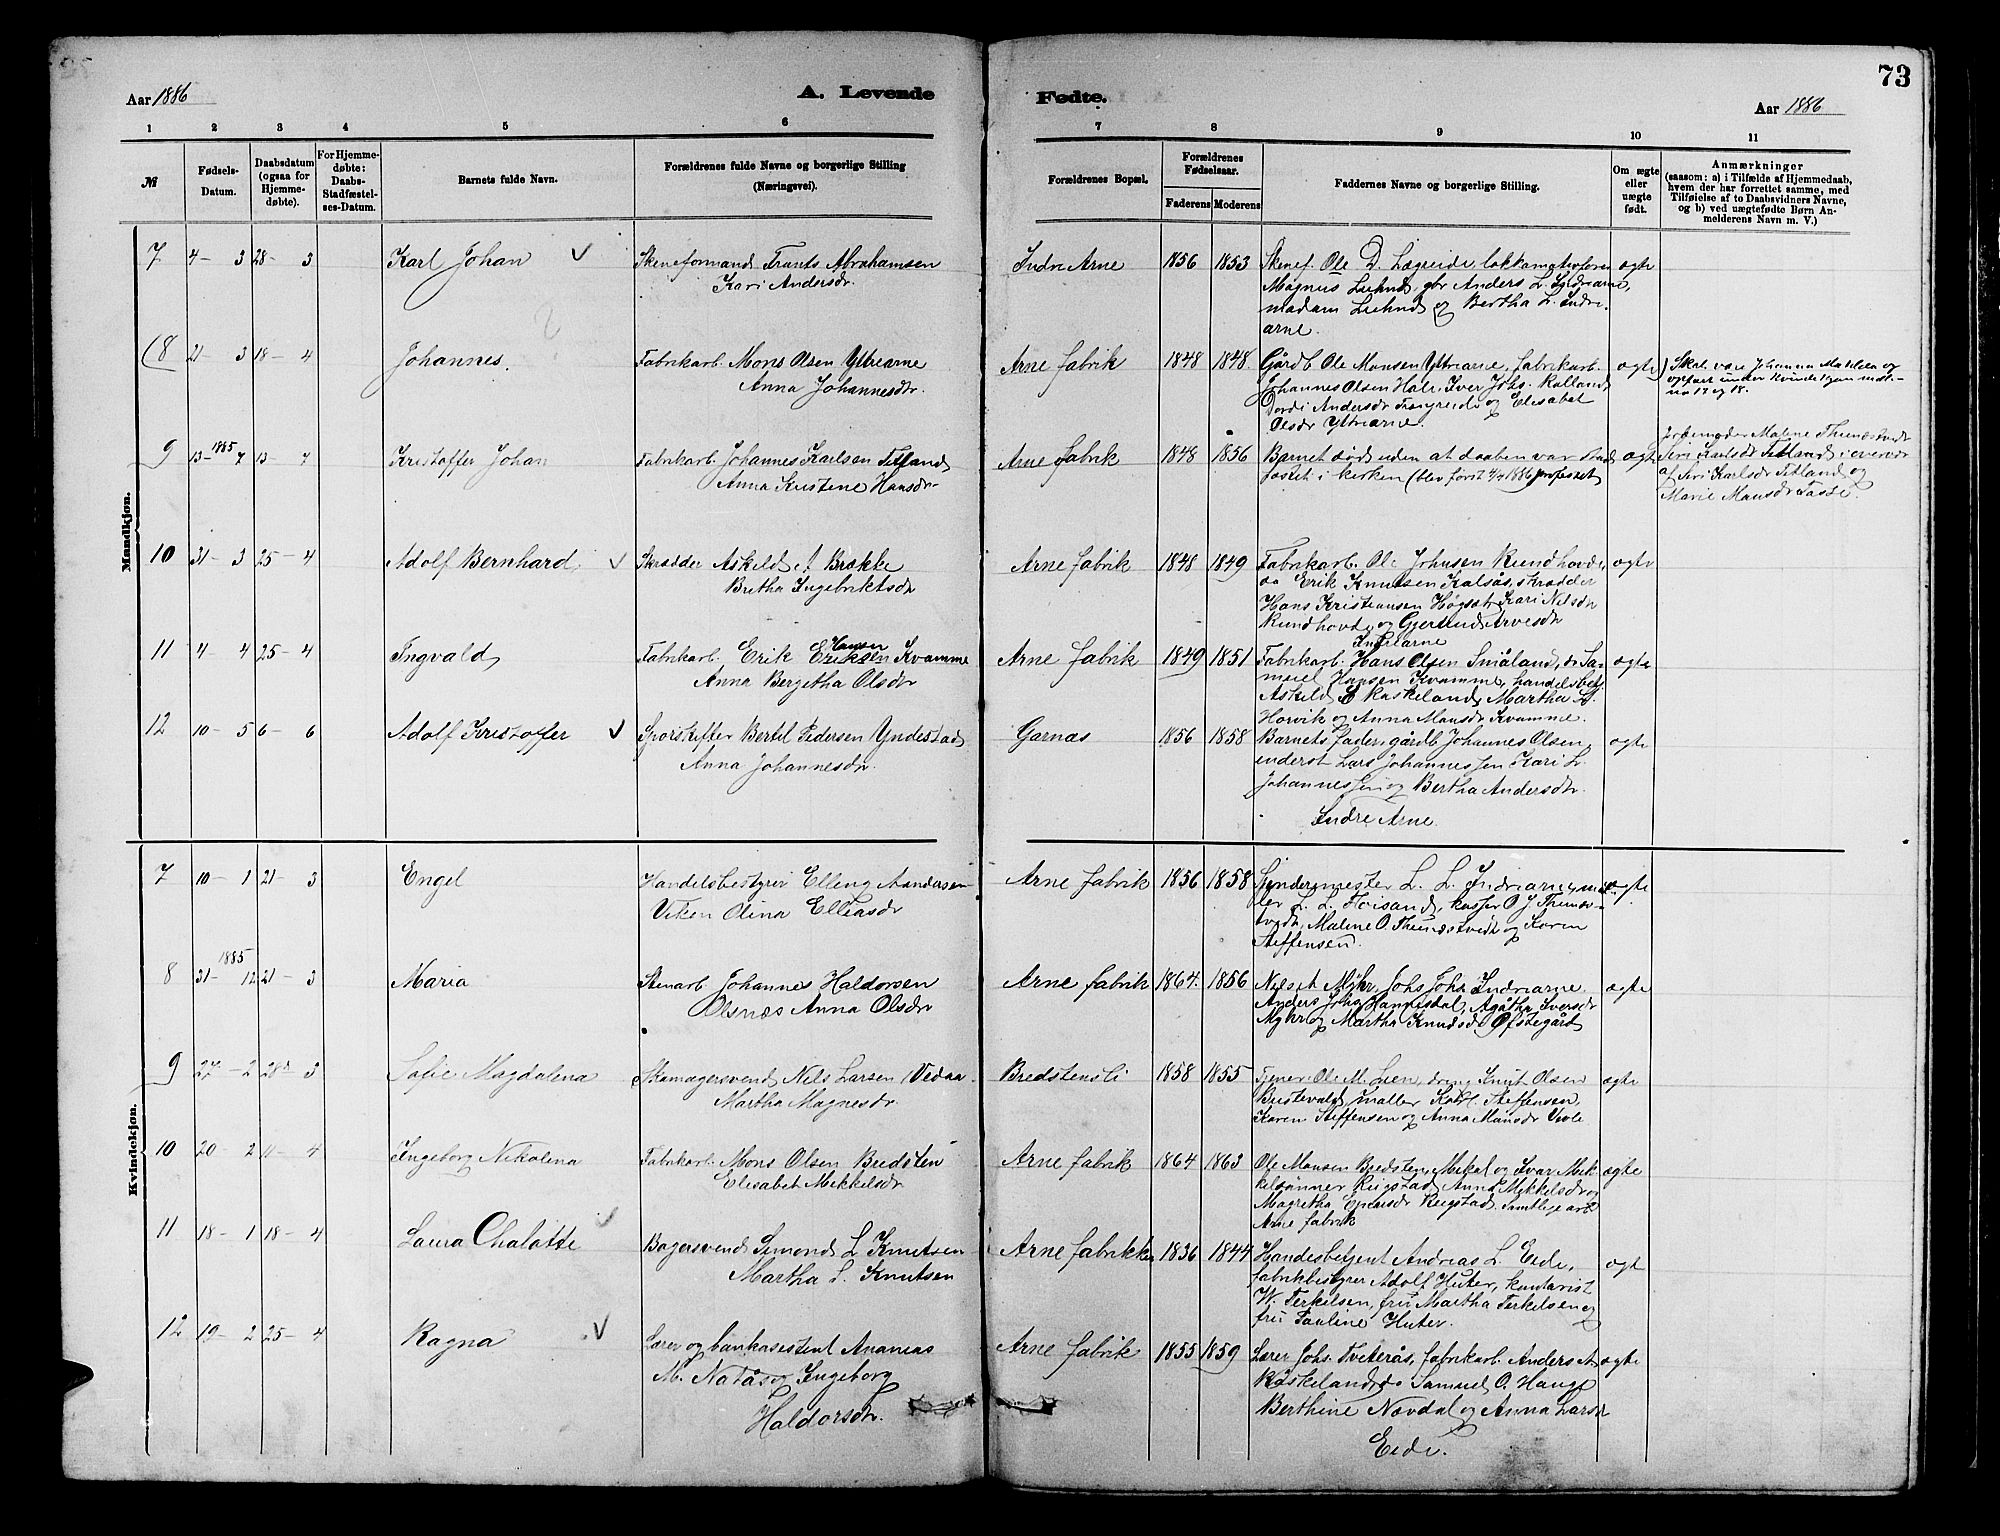 73
Aar 1886
A. Levende
Fødte.
Aar 1886
1 2 3 4 5 6
7 8 9 10 11
№
Fødsels-
Datum.
Daabsdatum
(ogsaa for
Hjemme-
døbte).
For Hjemme-
døbte:
Daabs-
Stadfæstel-
ses-Datum.
Barnets fulde Navn.
Forældrenes fulde Navne og borgerlige Stilling
(Næringsvei).
Forældrenes Bopæl.
Forældrenes
Fødselsaar.
Faderens Moderens
Faddernes Navne og borgerlige Stilling.
Om ægte
eller
uægte
født.
Anmærkninger
(saasom: a) i Tilfælde af Hjemmedaab,
hvem der har forrettet samme, med
Tilføielse af to Daabsvidners Navne,
og b) ved uægtefødte Børn An-
melderens Navn m. V.)
Mandkjøn.
7 4 - 3 28 - 3 Karl Johan
Frants Abrahamsen
Kari Andersdr.
Indre Arne 1856 1853
Ole D. Lægreide,
Magnus
madam og Bertha L. Indre
arne.
ægte
(8 21 - 3 18 - 4 Johannes.
Fabrikarb. Mons Olsen Ytrearne
Anna Johannesdr.
Arne fabrik 1848 1848
Gårdb. Ole Monsen Ytrearne, fabrikarb.
Johannes Olsen Iver Johs.
Andersdr og Elisabet
Olsdr Ytrearne.
ægte)
Skal være Johanna
opført under Kvindekjøn
9 13 - 1885 7 13 - 7 Kristoffer Johan
Fabrikarb. Johannes Karlsen Titland
Anna Kristene Hansdr.
Arne fabrik 1848 1856
Barnet døde uden at daaben var stad
fæstet i kirken (blev først 1886
ægte
Jordemoder Malene
Siri Karlsdr Titland i overvær
af Siri Karlsdr Titland og
Marie Monsdr
10 31 - 3 25 - 4 Adolf Bernhard
Skrædder Askild A Brække
Bretha Ingebriktsdr
Arne fabrik 1848 1849
Fabrikarb. Ole Johnsen Rundhovde,
do Erik Knutsen Kalsås, skrædder
Hans Kristiansen Kari Nilsdr
Rundhovde og Gjertrud Arvesdr
Indrearne
ægte
11 4 - 4 25 - 4 Ingvald
Hansen
Fabrikarb. Erik Eriksen Kvamme
Anna Bergetha Olsdr
Arne fabrik 1849 1851
Fabrikarb. Hans Olsen Småland, do Sa-
muel Hansen Kvamme, handelsbet.
Askild Raskeland, Martha
Horvik og Anna Monsdr Kvamme.
ægte
12 10 - 5 6 - 6 Adolf Kristoffer
Sporskifter Bertel Pedersen Yndestad
Anna Johannesdr.
Garnæs 1856 1858
Barnets fader, gårdb Johannes Olsen,
inderst Lars Johannessen Kari L.
Johannessen og Bertha Andersdr.
Indre Arne.
ægte
Kvindekjøn.
7 10 - 1 21 - 3 Engel
Handelsbestyrer Elling Andersen
Viken Olina Elleasdr
Arne fabrik 1856 1858
L. L. Indrearne,
kasser O J.
Malene O. og Karen
Steffensen.
ægte
8 31 - 1885 12 21 - 3 Maria
Stenarb. Johannes Haldorsen
Olsnæs Anna Olsdr
Arne fabrik 1864. 1856
Nils A Myhr, Johs Johs Indrearne.
Anders Johs Hannisdal, Agåtha Iversdr
Myhr og Martha Knudsdr Ofstegård
ægte
9 27 - 2 28 - 3 Sofie Magdalena
Skomagersvend Nils Larsen Vedaa
Martha Magnesdr.
Bredstensli 1858 1855
Tjener Ole M. Lien, dreng Knut Olsen
maller Steffensen,
Karen Steffensen og Anna Monsdr
ægte
10 20 - 2 11 - 4 Ingeborg Nikolina
Fabrikarb. Mons Olsen Bredsten
Elisabet Mikkelsdr
Arne fabrik 1864 1863
Ole Monsen Bredsten, Mikal og Ivar Mik-
kelsønner Reigstad Anna Mikkelsdr og
Magretha Reigstad. Samtlige arb
Arne fabrik
ægte
11 18 - 1 18 - 4 Laura Chalotte
Bagersvend Simond L Knutsen
Martha L. Knutsen
Arne fabrikken 1836 1844
Handesbetjent Andreas L. Eide,
fabrikbestyrer Adolf Huter, kontorist
W. Terkelsen, fru Martha Terkelsen og
fru Pauline Huter.
ægt
12 19 - 2 25 - 4 Ragna
Lærer og bankasistent Ananias
M. Natås og Ingeborg
Haldorsdr.
Arne fabrik 1855 1859
Lærer Johs. Tveterås, fabrikarb. Anders A
Raskeland, do Samuel O. Hauge
Berthine Novdal og Anna Larsdr
Eide.
ægte